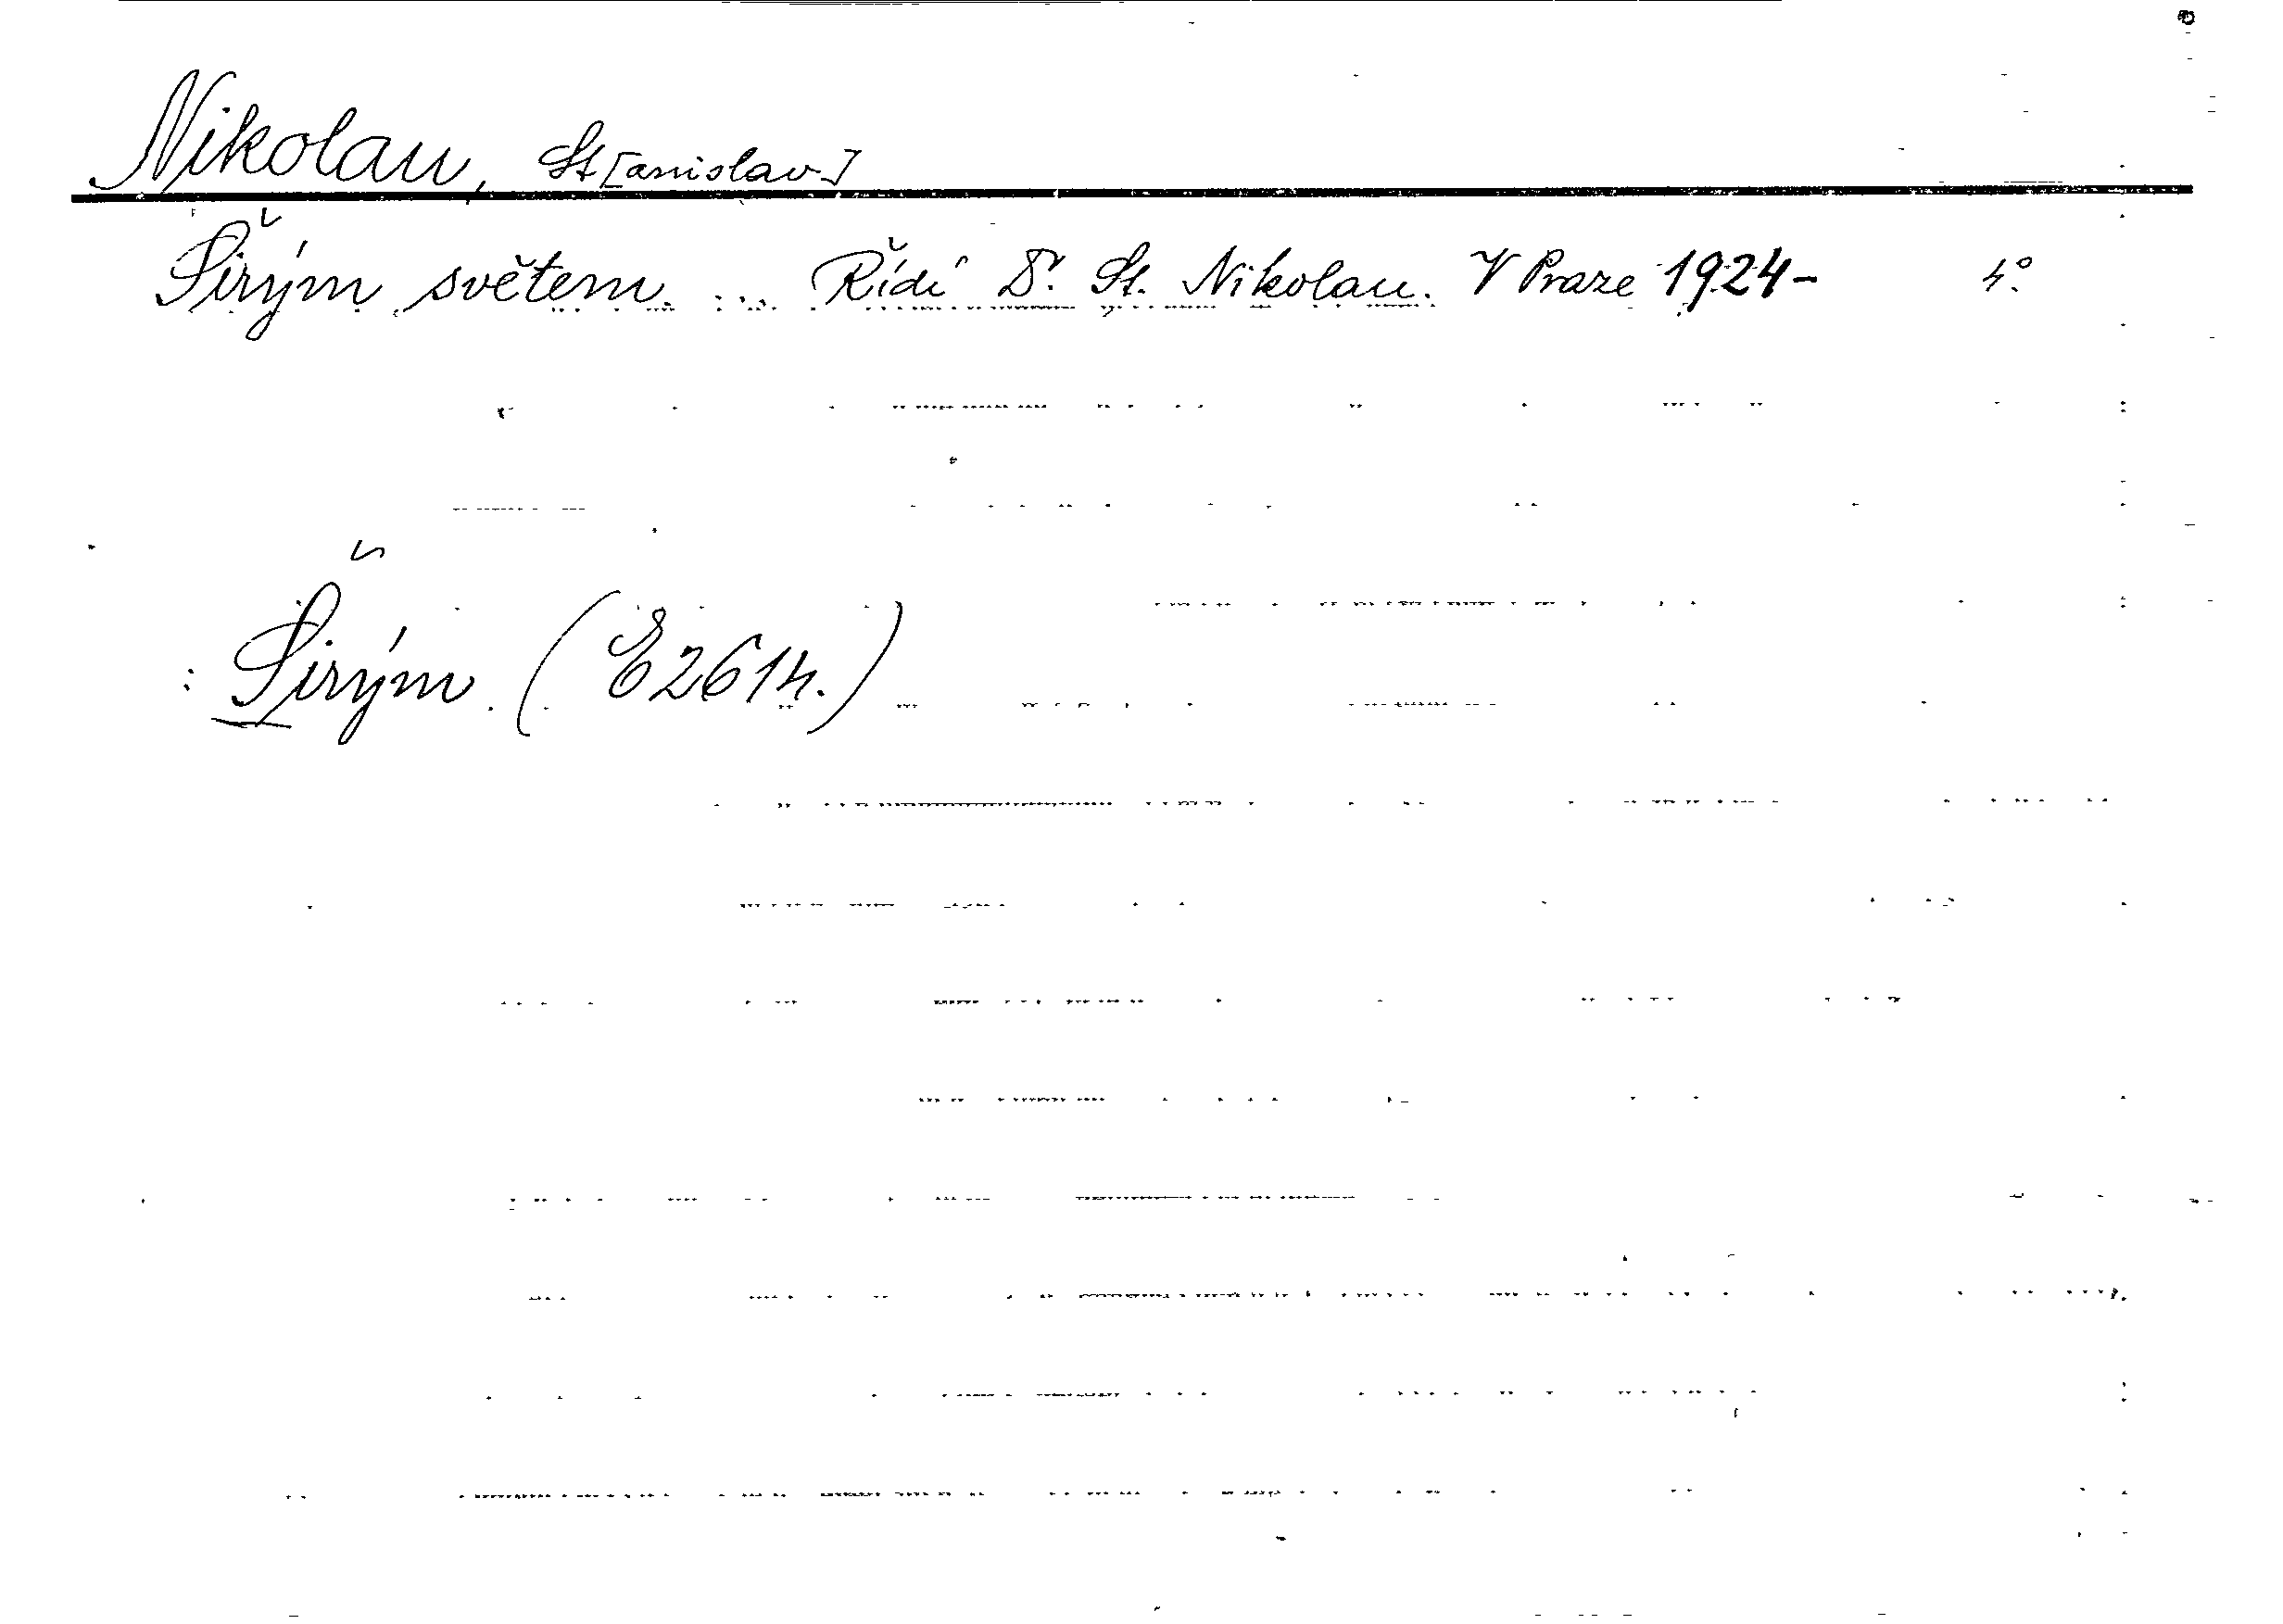 Nikolau, St[anislav]
Širým světem. ... Řídí Dr. St. Nikolau. V Praze 1924- 4°.
: Širým. (E2614.)